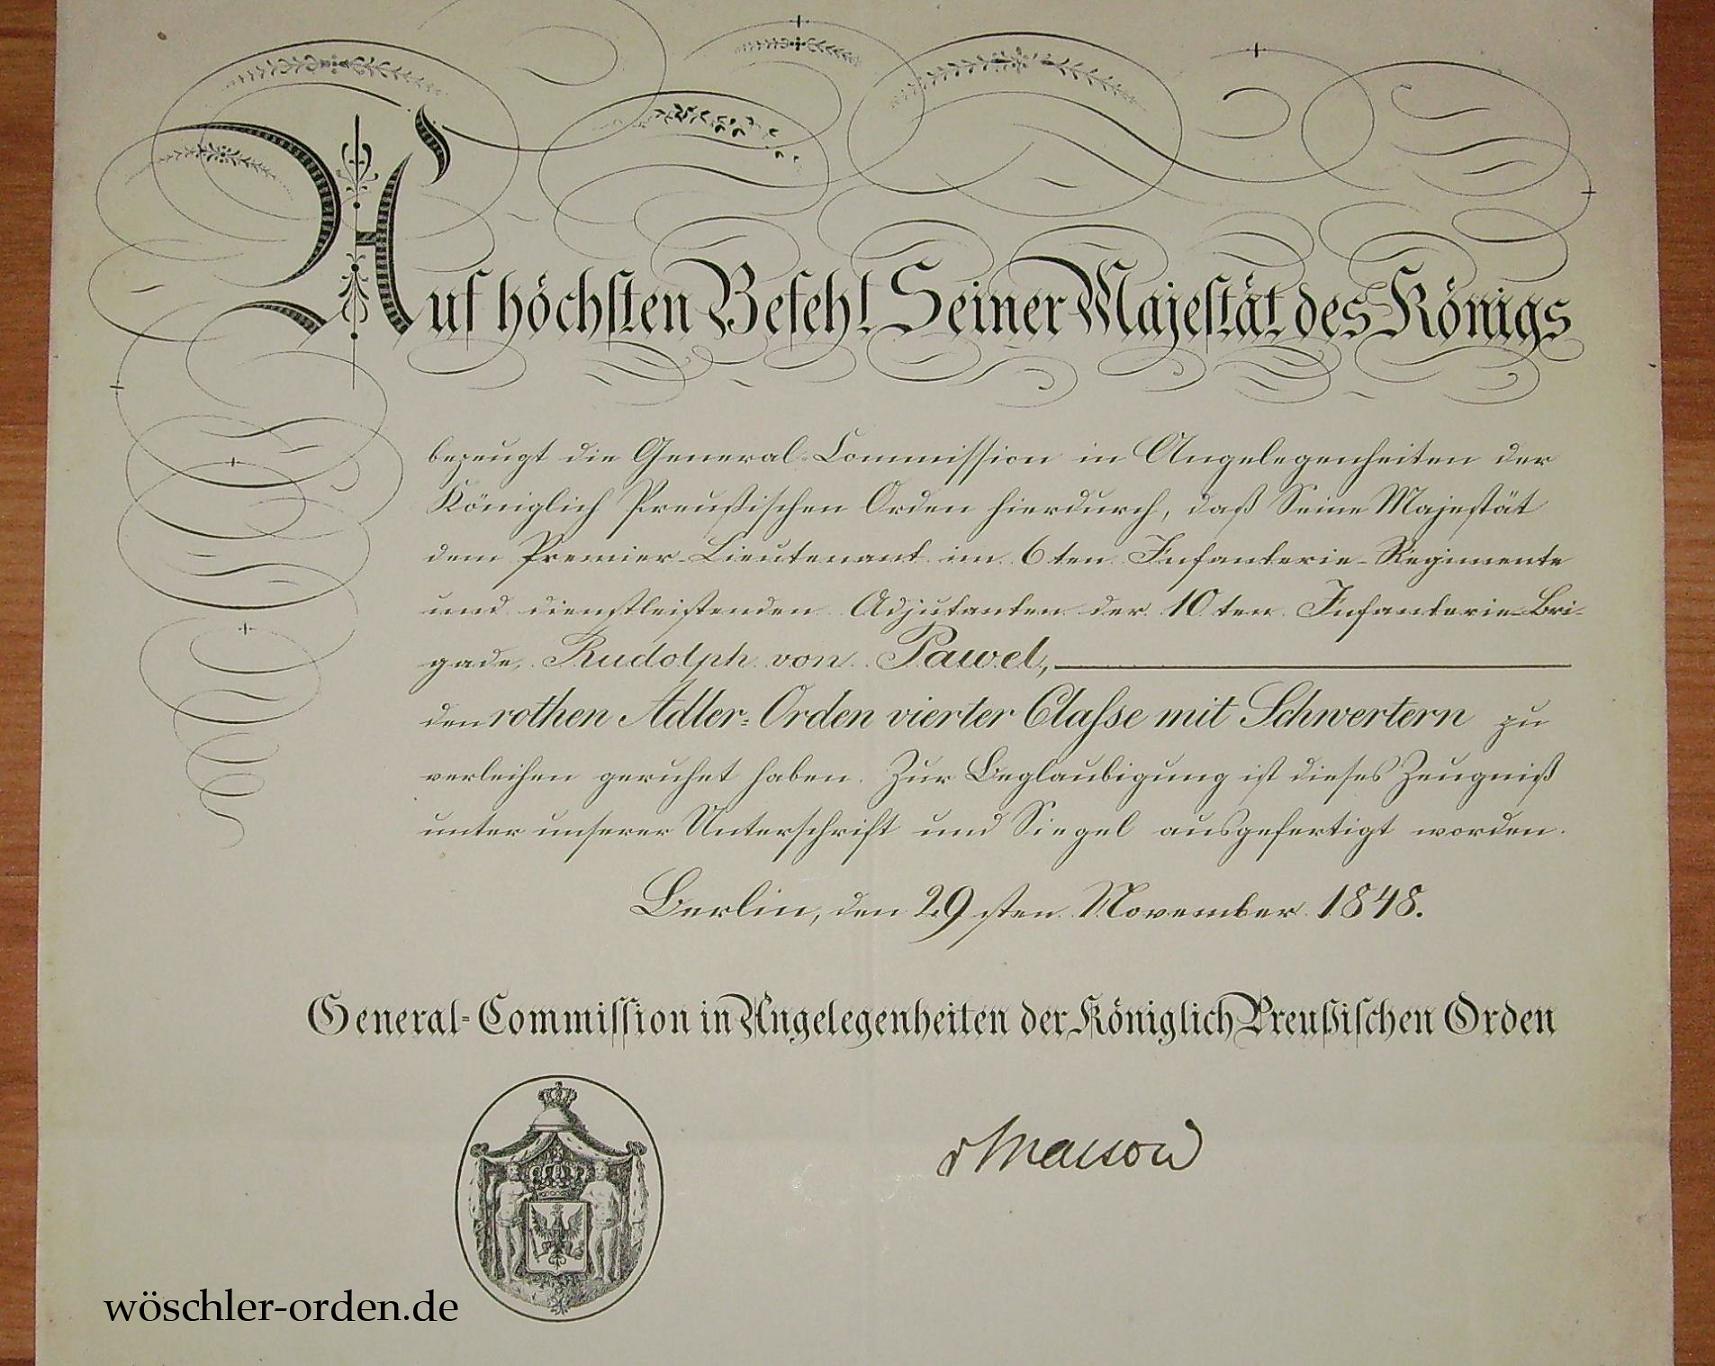 Auf höchsten Befehl Seiner Majestät des Königs
bezeugt die General-Commission in Angelegenheiten der
Königlich Preußischen Orden hierdurch, daß Seine Majestät
dem Premier-Lieutenant im 6ten Infanterie-Regimente
und dienstleistenden Adjutanten der 10ten Infanterie-Bri-
gade, Rudolph von Pawel,
den rothen Adler-Orden vierter Classe mit Schwertern zu
verleihen geruhet haben. Zur Beglaubigung ist dieses Zeugniß
unter unserer Unterschrift und Siegel ausgefertigt worden.
Berlin, den 29sten November 1848.
General-Commission in Angelegenheiten der Königlich Preußischen Orden
wöschler-orden.de